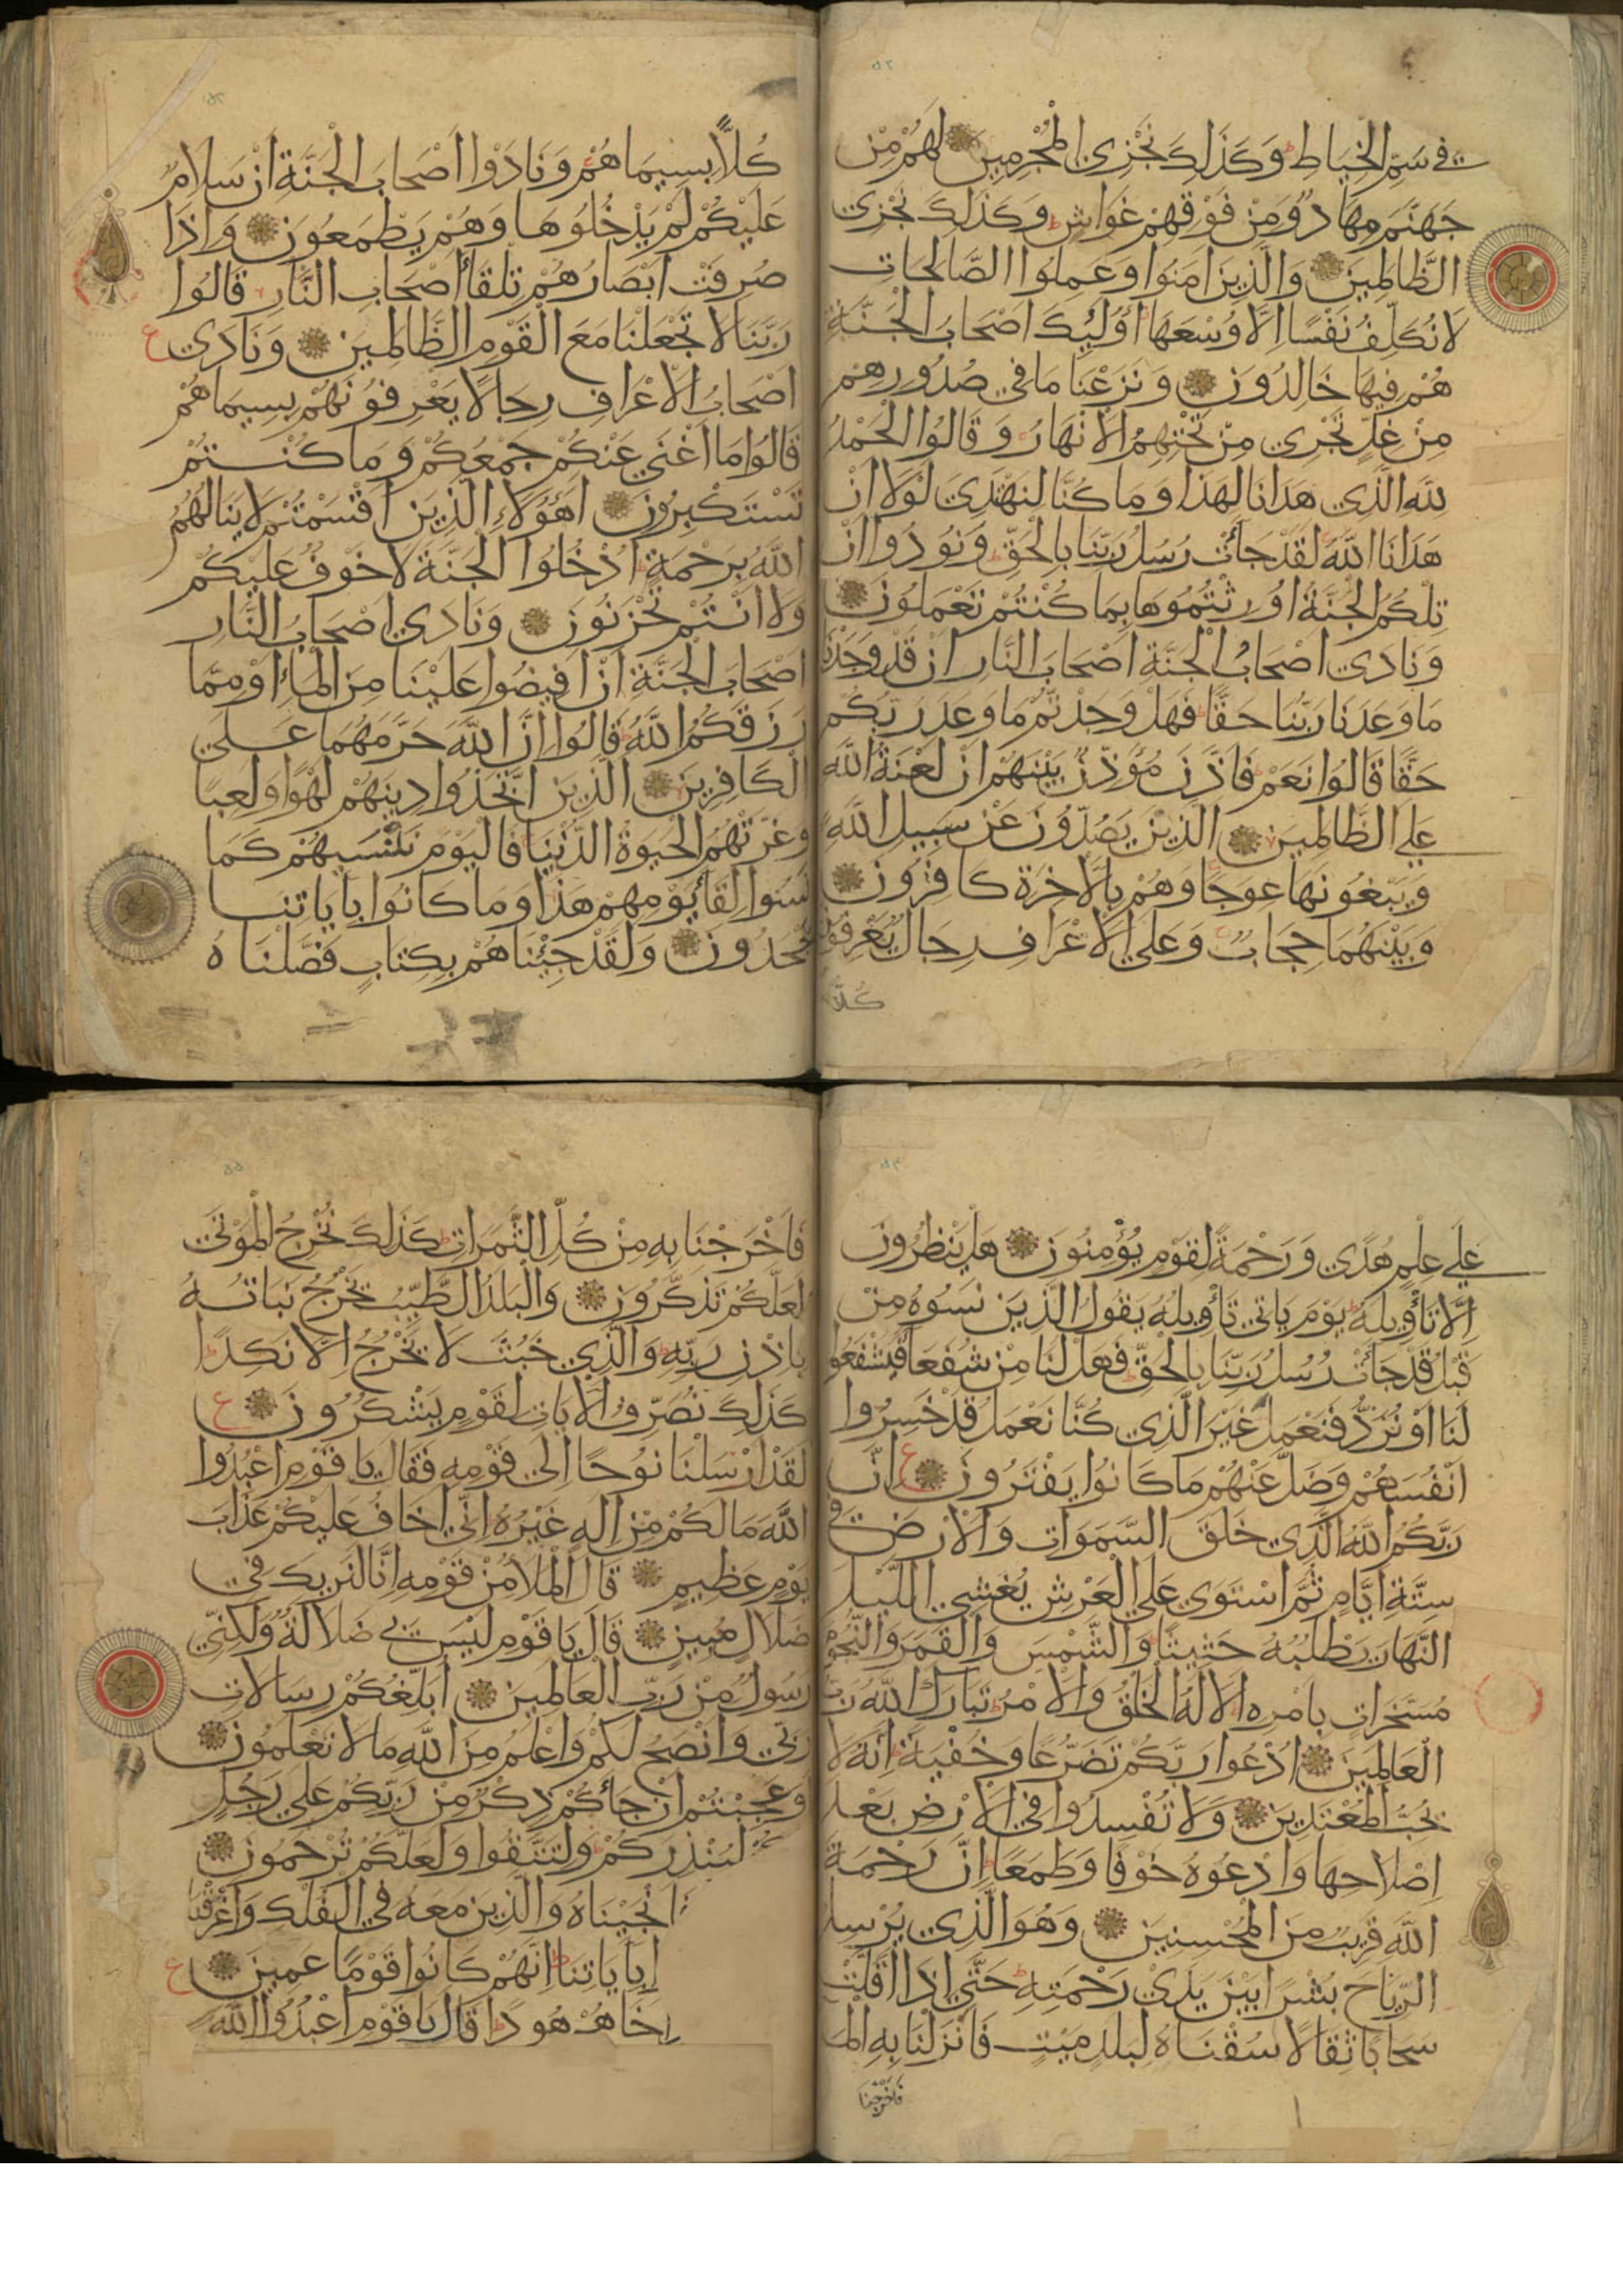 في سَمِّ الْخِيَاطِ وَكَذَلِكَ نَجْزِي الْمُجْرِمِينَ لَهُمْ مِنْ
جَهَنَّمَ مِهَادٌ وَمِنْ فَوْقِهِمْ غَوَاشٍ وَكَذَلِكَ نَجْزِي
الظَّالِمِينَ وَالَّذِينَ امَنُوا وَعَمِلُوا الصَّالِحَاتِ
لَا نُكَلِّفُ نَفْسًا اِلَّا وُسْعَهَا اُولَئِكَ اَصْحَابُ الْجَنَّةِ
هُمْ فِيهَا خَالِدُونَ وَنَزَعْنَا مَا فِي صُدُورِهِمْ
مِنْ غِلٍّ تَجْرِي مِنْ تَحْتِهِمُ الْاَنْهَارُ وَقَالُوا الْحَمْدُ
لِلَّهِ الَّذِي هَدَانَا لِهَذَا وَمَا كُنَّا لِنَهْتَدِيَ لَوْلَا اَنْ
هَدَانَا اللَّهُ لَقَدْ جَائَتْ رُسُلُ رَبِّنَا بِالْحَقِّ وَنُودُوا اَنْ
تِلْكُمُ الْجَنَّةُ اُورِثْتُمُوهَا بِمَا كُنْتُمْ تَعْمَلُونَ
وَنَادَى اَصْحَابُ الْجَنَّةِ اَصْحَابَ النَّارِ اَنْ قَدْ وَجَدْنَا
مَا وَعَدَنَا رَبُّنَا حَقًّا فَهَلْ وَجَدْتُمْ مَا وَعَدَ رَبُّكُمْ
حَقًّا قَالُوا نَعَمْ فَاَذَّنَ مُؤَذِّنٌ بَيْنَهُمْ اَنْ لَعْنَةُ اللَّهِ
عَلَى الظَّالِمِينَ الَّذِينَ يَصُدُّونَ عَنْ سَبِيلِ اللَّهِ
وَيَبْغُونَهَا عِوَجًا وَهُمْ بِالْاخِرَةِ كَافِرُونَ
وَبَيْنَهُمَا حِجَابٌ وَعَلَى الْاَعْرَافِ رِجَالٌ يَعْرِفُونَ
كُلًّا
كُلًّا بِسِيمَاهُمْ وَنَادَوْا اَصْحَابَ الْجَنَّةِ اَنْ سَلَامٌ
عَلَيْكُمْ لَمْ يَدْخُلُوهَا وَهُمْ يَطْمَعُونَ وَاِذَا
صُرِفَتْ اَبْصَارُهُمْ تِلْقَاَ اَصْحَابِ النَّارِ قَالُوا
رَبَّنَا لَا تَجْعَلْنَا مَعَ الْقَوْمِ الظَّالِمِينَ وَنَادَى ع
اَصْحَابُ الْاَعْرَافِ رِجَالًا يَعْرِفُونَهُمْ بِسِيمَاهُمْ
قَالُوا مَا اَغْنَى عَنْكُمْ جَمْعُكُمْ وَمَا كُنْتُمْ
تَسْتَكْبِرُونَ اَهَؤُلَاءِ الَّذِينَ اَقْسَمْتُمْ لَا يَنَالُهُمُ
اللَّهُ بِرَحْمَةٍ اُدْخُلُوا الْجَنَّةَ لَا خَوْفٌ عَلَيْكُمْ
وَلَا اَنْتُمْ تَحْزَنُونَ وَنَادَى اَصْحَابُ النَّارِ
اَصْحَابَ الْجَنَّةِ اَنْ اَفِيضُوا عَلَيْنَا مِنَ الْمَاءِ اَوْ مِمَّا
رَزَقَكُمُ اللَّهُ قَالُوا اِنَّ اللَّهَ حَرَّمَهُمَا عَلَى
الْكَافِرِينَ الَّذِينَ اتَّخَذُوا دِينَهُمْ لَهْوًا وَلَعِبًا
وَغَرَّتْهُمُ الْحَيَوةُ الدُّنْيَا فَالْيَوْمَ نَنْسَيهُمْ كَمَا
نَسُوا لِقَاَ يَوْمِهِمْ هَذَا وَمَا كَانُوا بِايَاتِنَا
يَجْحَدُونَ وَلَقَدْ جِئْنَاهُمْ بِكِتَابٍ فَصَّلْنَاهُ
عَلَى عِلْمٍ هُدًى وَرَحْمَةً لِقَوْمٍ يُؤْمِنُونَ هَلْ يَنْظُرُونَ
اِلَّا تَأْوِيلَهُ يَوْمَ يَاتِي تَأْوِيلُهُ يَقُولُ الَّذِينَ نَسُوهُ مِنْ
قَبْلُ قَدْ جَائَتْ رُسُلُ رَبِّنَا بِالْحَقِّ فَهَلْ لَنَا مِنْ شُفَعَاَ فَيَشْفَعُوا
لَنَا اَوْ نُرَدُّ فَنَعْمَلَ غَيْرَ الَّذِي كُنَّا نَعْمَلُ قَدْ خَسِرُوا
اَنْفُسَهُمْ وَضَلَّ عَنْهُمْ مَا كَانُوا يَفْتَرُونَ ع اِنَّ
رَبَّكُمُ اللَّهُ الَّذِي خَلَقَ السَّمَوَاتِ وَالْاَرْضَ فِي
سِتَّةِ اَيَّامٍ ثُمَّ اسْتَوَى عَلَى الْعَرْشِ يُغْشِي اللَّيْلَ
النَّهَارَ يَطْلُبُهُ حَثِيثًا وَالشَّمْسَ وَالْقَمَرَ وَالنُّجُومَ
مُسَخَّرَاتٍ بِاَمْرِهِ اَلَا لَهُ الْخَلْقُ وَالْاَمْرُ تَبَارَكَ اللَّهُ رَبُّ
الْعَالَمِينَ اُدْعُوا رَبَّكُمْ تَضَرُّعًا وَخُفْيَةً اِنَّهُ لَا
يُحِبُّ الْمُعْتَدِينَ وَلَا تُفْسِدُوا فِي الْاَرْضِ بَعْدَ
اِصْلَاحِهَا وَادْعُوهُ خَوْفًا وَطَمَعًا اِنَّ رَحْمَةَ
اللَّهِ قَرِيبٌ مِنَ الْمُحْسِنِينَ وَهُوَ الَّذِي يُرْسِلُ
الرِّيَاحَ بُشْرًا بَيْنَ يَدَيْ رَحْمَتِهِ حَتَّى اِذَا اَقَلَّتْ
سَحَابًا ثِقَالًا سُقْنَاهُ لِبَلَدٍ مَيِّتٍ فَاَنْزَلْنَا بِهِ الْمَاَ
فَاَخْرَجْنَا
فَاَخْرَجْنَا بِهِ مِنْ كُلِّ الثَّمَرَاتِ كَذَلِكَ نُخْرِجُ الْمَوْتَى
لَعَلَّكُمْ تَذَكَّرُونَ وَالْبَلَدُ الطَّيِّبُ يَخْرُجُ نَبَاتُهُ
بِاِذْنِ رَبِّهِ وَالَّذِي خَبُثَ لَا يَخْرُجُ اِلَّا نَكِدًا
كَذَلِكَ نُصَرِّفُ الْايَاتِ لِقَوْمٍ يَشْكُرُونَ ع
لَقَدْ اَرْسَلْنَا نُوحًا اِلَى قَوْمِهِ فَقَالَ يَا قَوْمِ اعْبُدُوا
اللَّهَ مَا لَكُمْ مِنْ اِلَهٍ غَيْرُهُ اِنِّي اَخَافُ عَلَيْكُمْ عَذَابَ
يَوْمٍ عَظِيمٍ قَالَ الْمَلَاُ مِنْ قَوْمِهِ اِنَّا لَنَرَيكَ فِي
ضَلَالٍ مُبِينٍ قَالَ يَا قَوْمِ لَيْسَ بِي ضَلَالَةٌ وَلَكِنِّي
رَسُولٌ مِنْ رَبِّ الْعَالَمِينَ اُبَلِّغُكُمْ رِسَالَاتِ
رَبِّي وَاَنْصَحُ لَكُمْ وَاَعْلَمُ مِنَ اللَّهِ مَا لَا تَعْلَمُونَ
وَعَجِبْتُمْ اَنْ جَائَكُمْ ذِكْرٌ مِنْ رَبِّكُمْ عَلَى رَجُلٍ
لِيُنْذِرَكُمْ وَلِتَتَّقُوا وَلَعَلَّكُمْ تُرْحَمُونَ
اَنْجَيْنَاهُ وَالَّذِينَ مَعَهُ فِي الْفُلْكِ وَاَغْرَقْنَا
بِايَاتِنَا اِنَّهُمْ كَانُوا قَوْمًا عَمِينَ ع
اَخَاهُمْ هُودًا قَالَ يَا قَوْمِ اعْبُدُوا اللَّهَ